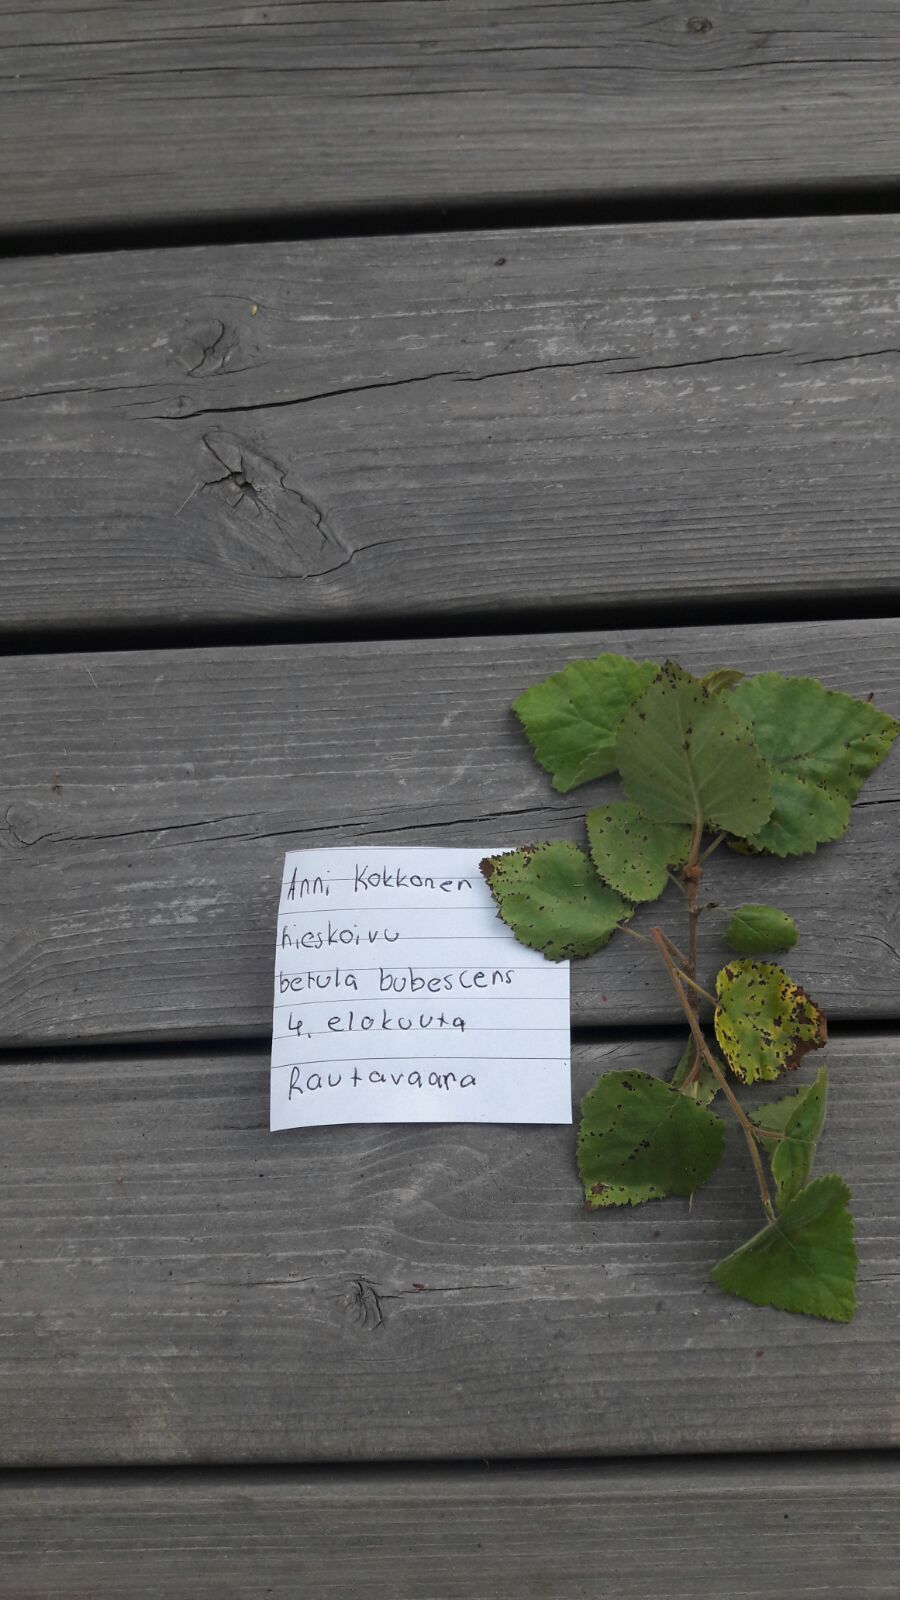 Anni Kokkonen
hieskoivu
betula bubescens
4. elokuuta
Rautavaara